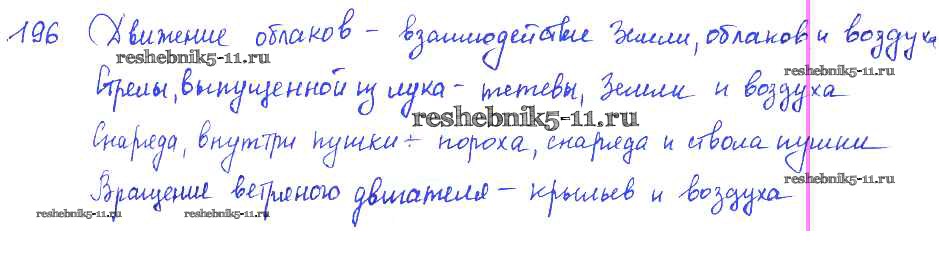 196 Движение облаков - взаимодействие Земли, облаков и воздуха
reshebnik5-11.ru
reshebnik5-11.ru
Стрелы, выпущенной из лука - тетевы, Земли и воздуха
reshebnik5-11.ru
Снаряда, внутри пушки - пороха, снаряда и ствола пушки
reshebnik5-11.ru
Вращение ветряного двигателя - крыльев и воздуха
reshebnik5-11.ru
reshebnik5-11.ru